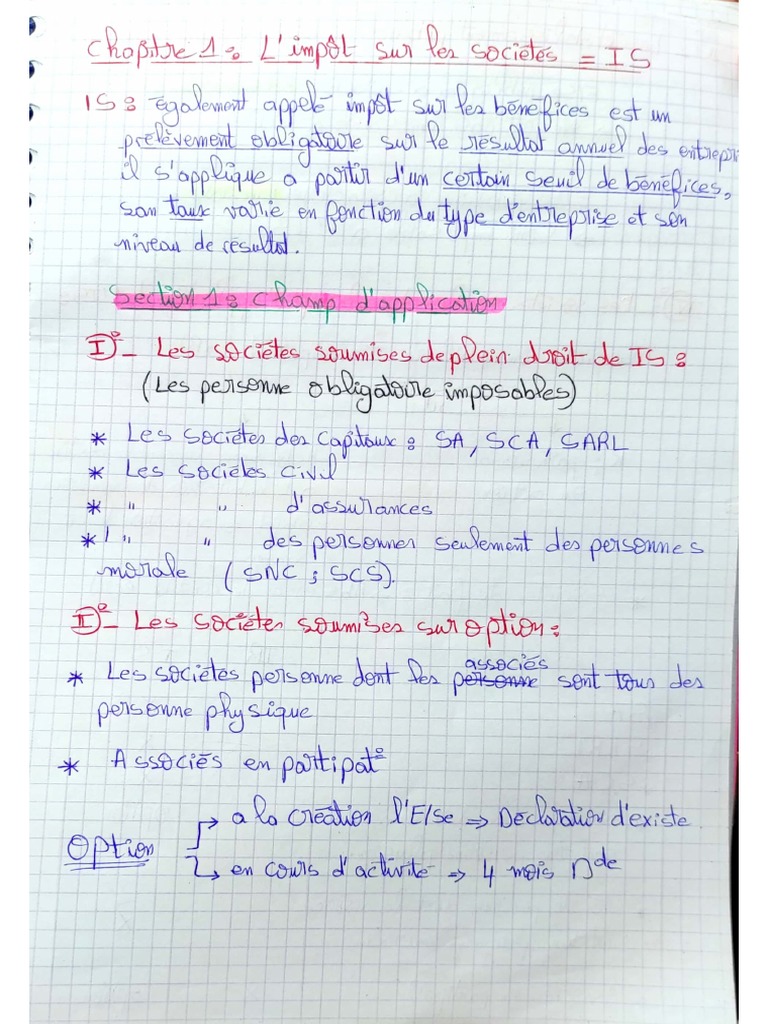 Chapitre 1 : L'impôt sur les sociétés = IS
IS : également appelé impôt sur les bénéfices est un
prélèvement obligatoire sur le résultat annuel des entrepri
il s'applique a partir d'un certain seuil de bénéfices,
son taux varie en fonction du type d'entreprise et son
niveau de résultat.
Section 1 : Champ d'application
I°- Les sociétés soumises de plein droit de IS :
(Les personne obligatoire imposables)
* Les sociétés des capitaux : SA, SCA, SARL
* Les sociétés civil
* " " d'assurances
* " " des personnes seulement des personnes
morale (SNC ; SCS).
II°- Les sociétés soumises sur option :
* Les sociétés personne dont les personne associés sont tous des
personne physique
* Associés en participat°
Option
→ a la création l'E/se ⇒ Déclaration d'existe
→ en cours d'activité ⇒ 4 mois